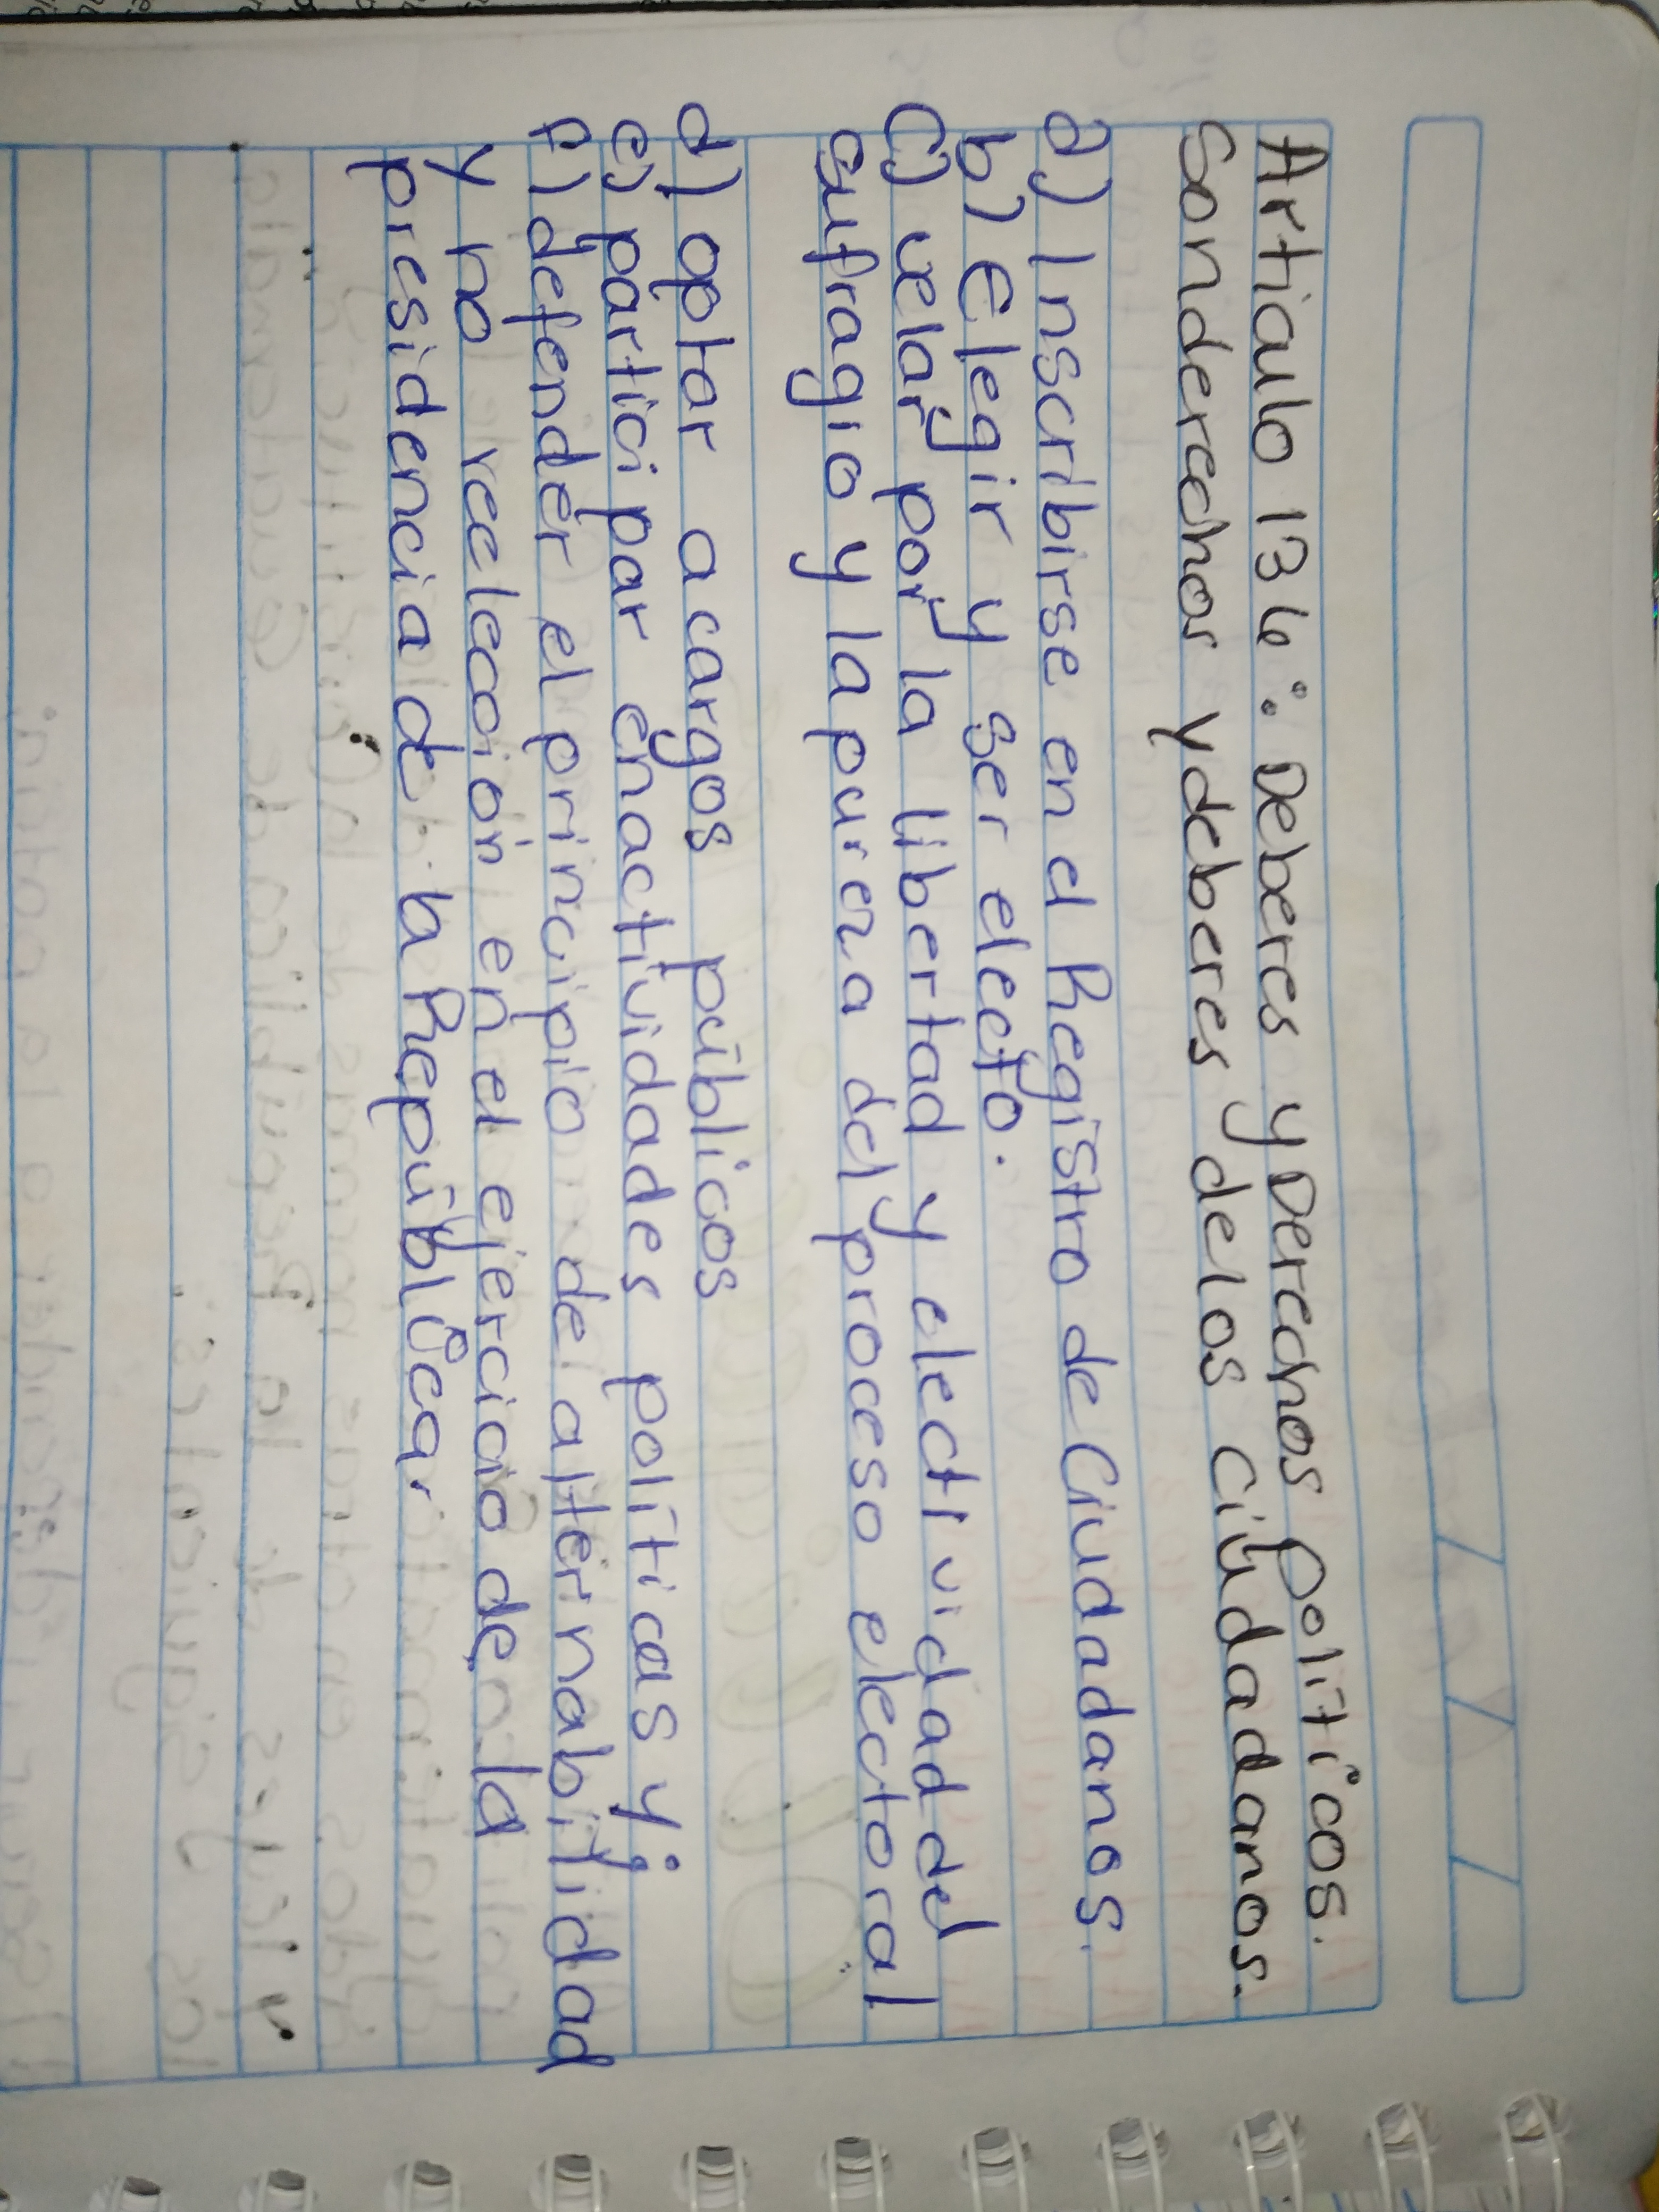 Artículo 136: Deberes y Derechos Políticos.
Son derechos y deberes de los Ciudadanos.
a) Inscribirse en el Registro de Ciudadanos.
b) Elegir y ser electo.
c) velar por la libertad y electividad del
sufragio y la pureza del proceso electoral
d) optar a cargos públicos
e) participar en actividades políticas y;
f) defender el principio de alternabilidad
y no reelección en el ejercicio de la
presidencia de la República.